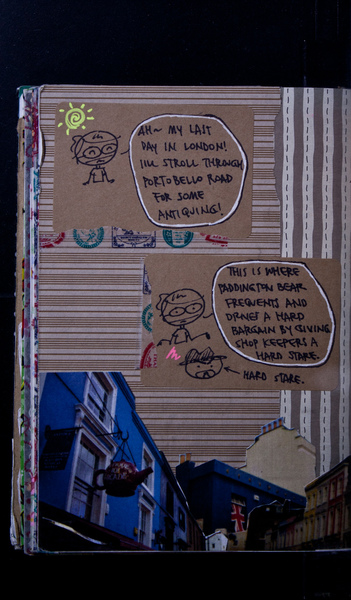 AH~ MY LAST
DAY IN LONDON!
I'LL STROLL THROUGH
PORTOBELLO ROAD
FOR SOME
ANTIQUING!
THIS IS WHERE
PADDINGTON BEAR
FREQUENTS AND
DRIVES A HARD
BARGAIN BY GIVING
SHOP KEEPERS A
HARD STARE.
HARD STARE.